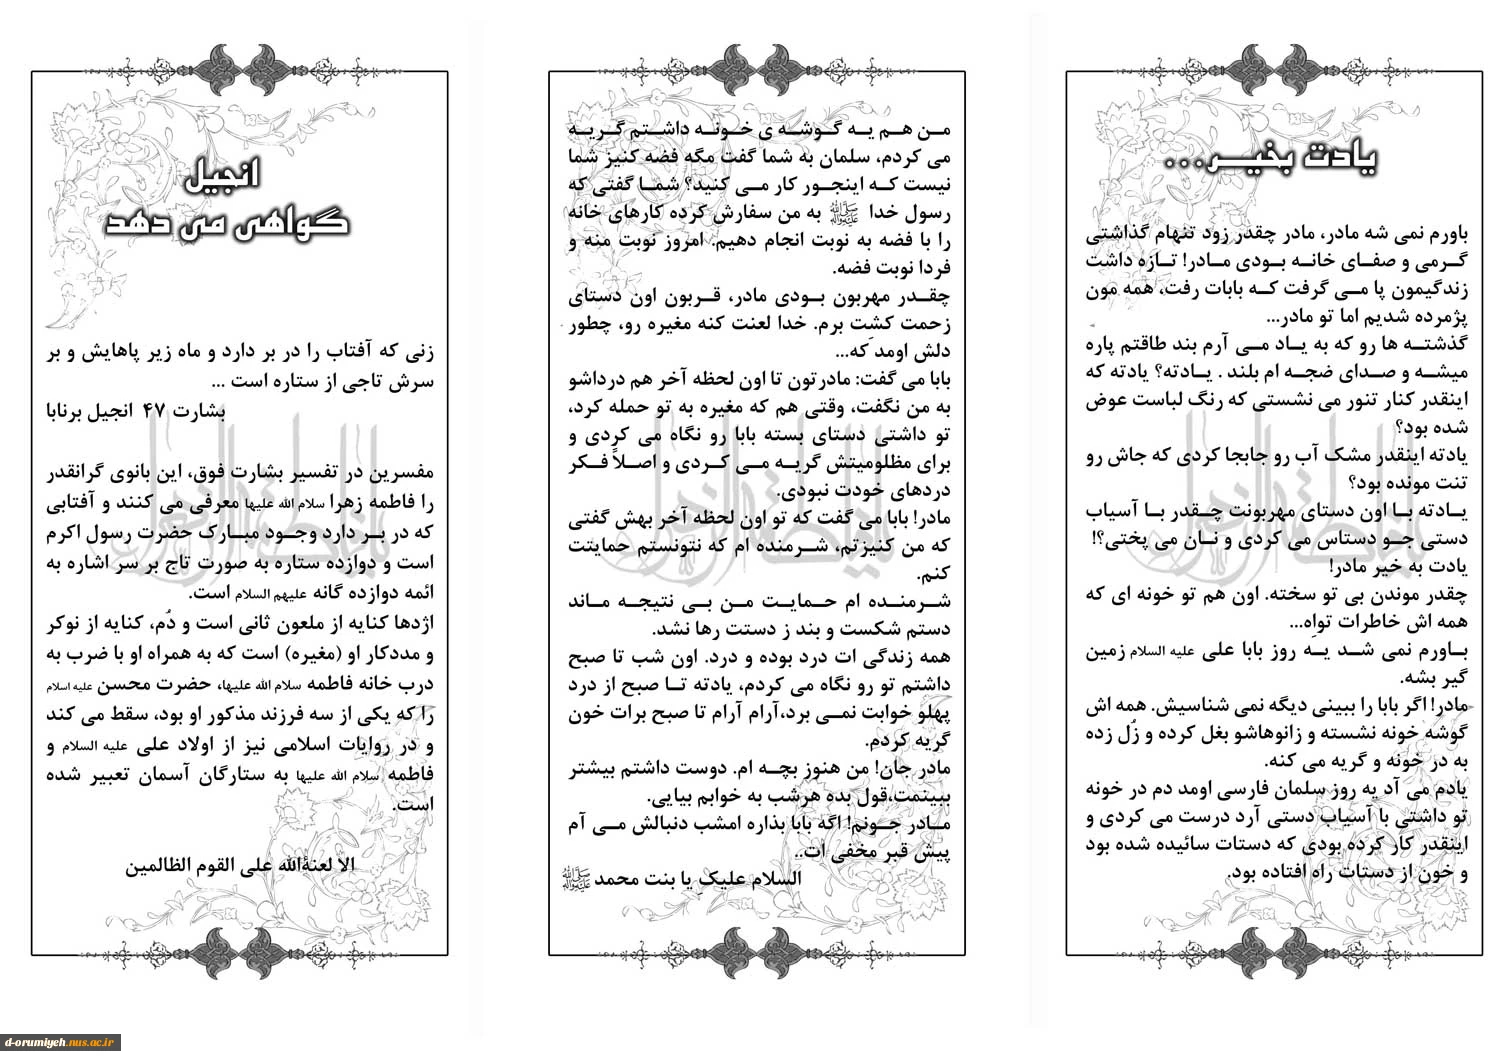 یادت بخیر...
باورم نمی شه مادر، مادر چقدر زود تنهام گذاشتی
گرمی و صفای خانه بودی مادر! تازه داشت
زندگیمون پا می گرفت که بابات رفت، همه مون
پژمرده شدیم اما تو مادر...
گذشته ها رو که به یاد می آرم بند طاقتم پاره
میشه و صدای ضجه ام بلند . یادته؟ یادته که
اینقدر کنار تنور می نشستی که رنگ لباست عوض
شده بود؟
یادته اینقدر مشک آب رو جابجا کردی که جاش رو
تنت مونده بود؟
یادته با اون دستای مهربونت چقدر با آسیاب
دستی جو دستاس می کردی و نان می پختی؟!
یادت به خیر مادر!
چقدر موندن بی تو سخته. اون هم تو خونه ای که
همه اش خاطرات تواِه...
باورم نمی شد یه روز بابا علی علیه السلام زمین
گیر بشه.
مادر! اگر بابا را ببینی دیگه نمی شناسیش. همه اش
گوشه خونه نشسته و زانوهاشو بغل کرده و زُل زده
به در خونه و گریه می کنه.
یادم می آد یه روز سلمان فارسی اومد دم در خونه
تو داشتی با آسیاب دستی آرد درست می کردی و
اینقدر کار کرده بودی که دستات سائیده شده بود
و خون از دستات راه افتاده بود.
من هم یه گوشه ی خونه داشتم گریه
می کردم، سلمان به شما گفت مگه فضه کنیز شما
نیست که اینجور کار می کنید؟ شما گفتی که
رسول خدا ﷺ به من سفارش کرده کارهای خانه
را با فضه به نوبت انجام دهیم. امروز نوبت منه و
فردا نوبت فضه.
چقدر مهربون بودی مادر، قربون اون دستای
زحمت کشت برم. خدا لعنت کنه مغیره رو، چطور
دلش اومد که...
بابا می گفت: مادرتون تا اون لحظه آخر هم درداشو
به من نگفت، وقتی هم که مغیره به تو حمله کرد،
تو داشتی دستای بسته بابا رو نگاه می کردی و
برای مظلومیتش گریه می کردی و اصلاً فکر
دردهای خودت نبودی.
مادر! بابا می گفت که تو اون لحظه آخر بهش گفتی
که من کنیزتم، شرمنده ام که نتونستم حمایتت
کنم.
شرمنده ام حمایت من بی نتیجه ماند
دستم شکست و بند ز دستت رها نشد.
همه زندگی ات درد بوده و درد. اون شب تا صبح
داشتم تو رو نگاه می کردم، یادته تا صبح از درد
پهلو خوابت نمی برد،آرام آرام تا صبح برات خون
گریه کردم.
مادر جان! من هنوز بچه ام. دوست داشتم بیشتر
ببینمت،قول بده هرشب به خوابم بیایی.
مادر جونم! اگه بابا بذاره امشب دنبالش می آم
پیش قبر مخفی ات..
السلام علیکِ یا بنت محمد ﷺ
انجیل
گواهی می دهد
زنی که آفتاب را در بر دارد و ماه زیر پاهایش و بر
سرش تاجی از ستاره است ...
بشارت ۴۷ انجیل برنابا
مفسرین در تفسیر بشارت فوق، این بانوی گرانقدر
را فاطمه زهرا سلام الله علیها معرفی می کنند و آفتابی
که در بر دارد وجود مبارک حضرت رسول اکرم
است و دوازده ستاره به صورت تاج بر سر اشاره به
ائمه دوازده گانه علیهم السلام است.
اژدها کنایه از ملعون ثانی است و دُم، کنایه از نوکر
و مددکار او (مغیره) است که به همراه او با ضرب به
درب خانه فاطمه سلام الله علیها، حضرت محسن علیه اسلام
را که یکی از سه فرزند مذکور او بود، سقط می کند
و در روایات اسلامی نیز از اولاد علی علیه السلام و
فاطمه سلام الله علیها به ستارگان آسمان تعبیر شده
است.
الا لعنةالله علی القوم الظالمین
d-orumiyeh.nus.ac.ir